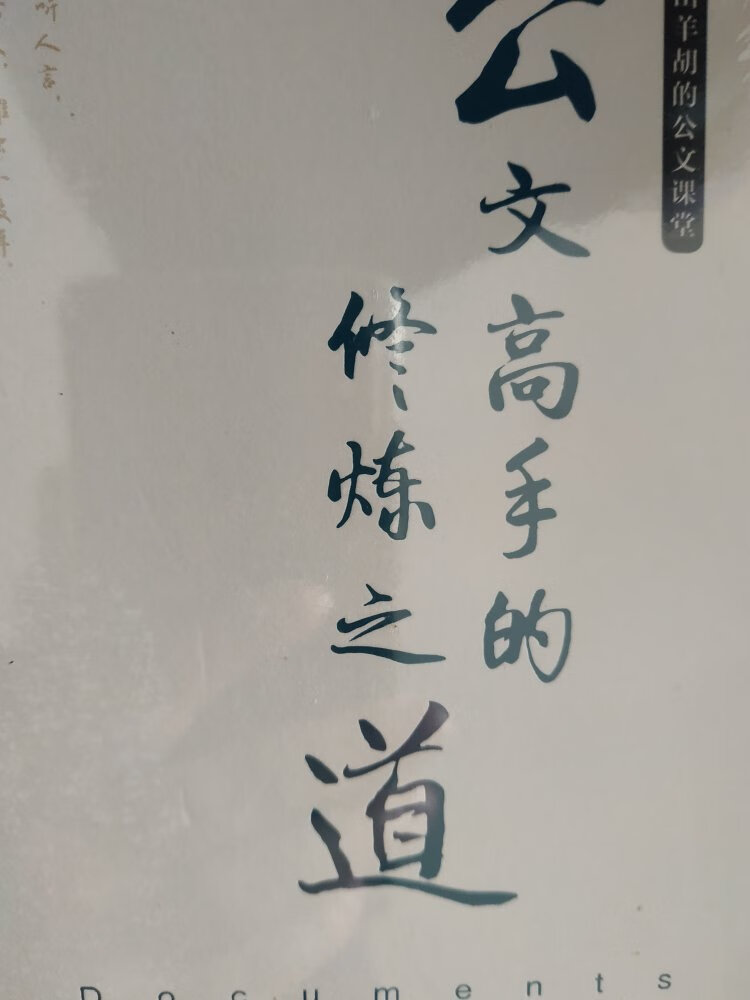 羊胡的公文课堂
公文高手的
修炼之道
听人言
Documents